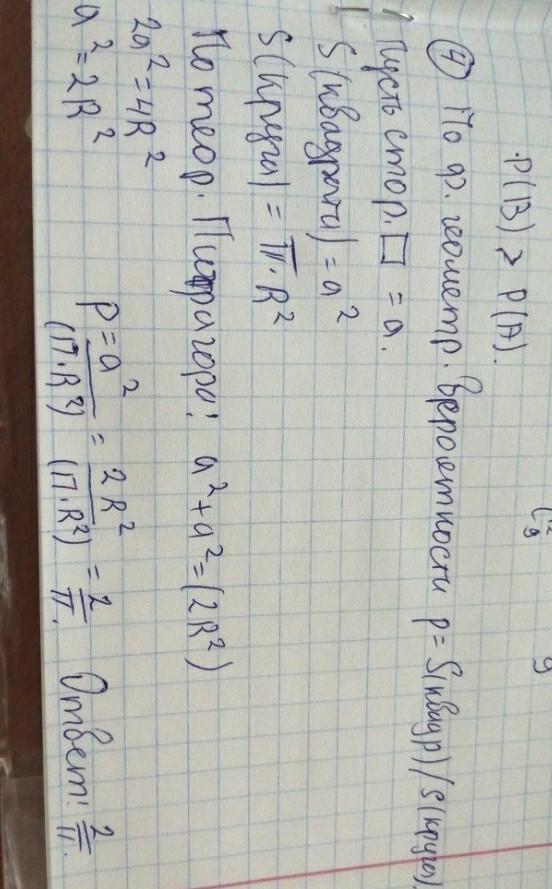 P(B) > P(A).
④ По ф. геометр. вероятности p = S(квадр)/S(круга).
Пусть стор. □ = a.
S(квадрата) = a²
S(круга) = π·R²
По теор. Пифагора: a² + a² = (2R²)
2a² = 4R²
a² = 2R²
p = a²/(π·R²) = 2R²/(π·R²) = 2/π. Ответ: 2/π.